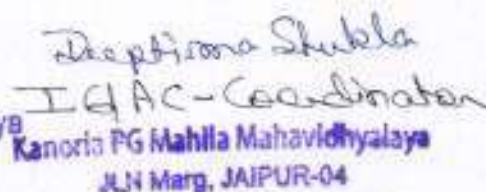 Deeptima Shukla
IQAC-Coordinator
Kanoria PG Mahila Mahavidhyalaya
JLN Marg, JAIPUR-04